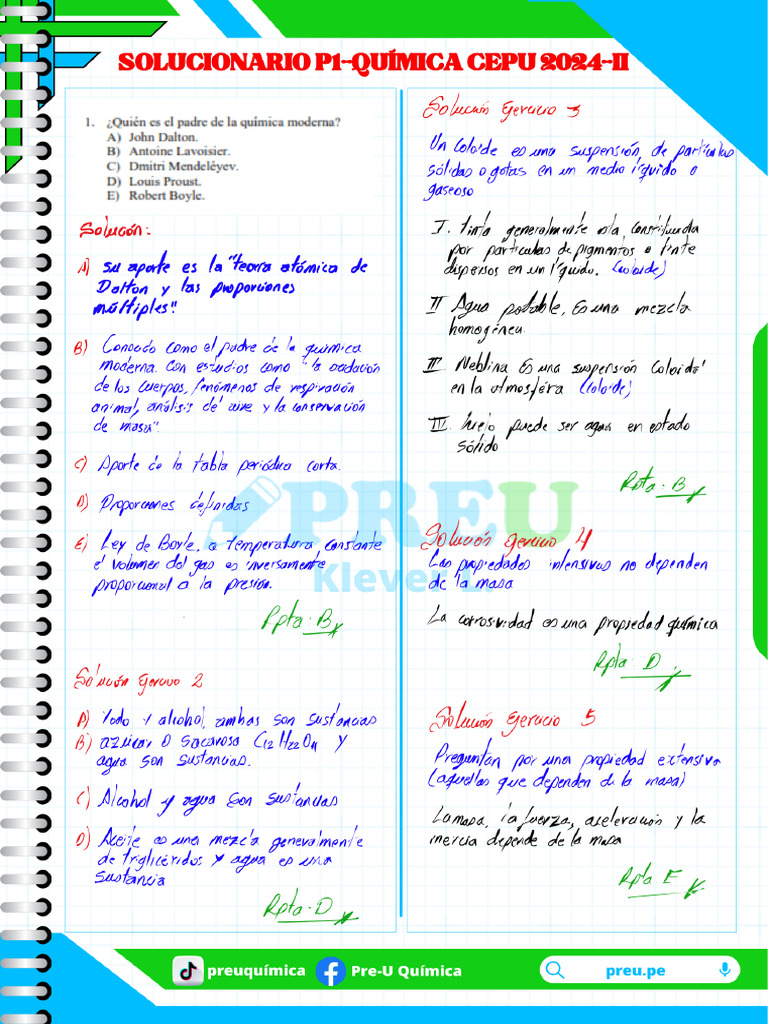 SOLUCIONARIO P1-QUÍMICA CEPU 2024-II
1. ¿Quién es el padre de la química moderna?
A) John Dalton.
B) Antoine Lavoisier.
C) Dmitri Mendeléyev.
D) Louis Proust.
E) Robert Boyle.
Solución:
A) su aporte es la "teoría atómica de
Dalton y las proporciones
múltiples".
B) Conocido como el padre de la química
moderna. Con estudios como "la oxidación
de los cuerpos, fenómenos de respiración
animal, análisis de aire y la conservación
de masa".
C) Aporte de la tabla periódica corta.
D) Proporciones definidas
E) Ley de Boyle, a temperatura constante
el volumen del gas es inversamente
proporcional a la presión.
Rpta. B
Solución Ejercicio 2
A) Yodo y alcohol, ambas son sustancias
B) azúcar o sacarosa C12H22O11 y
agua son sustancias.
C) Alcohol y agua son sustancias
D) Aceite es una mezcla generalmente
de triglicéridos y agua es una
sustancia
Rpta. D
Solución Ejercicio 3
Un coloide es una suspensión de partículas
sólidas o gotas en un medio líquido o
gaseoso
I. Tinta generalmente esta constituida
por partículas de pigmentos o tinte
dispersos en un líquido. (coloide)
II Agua potable, Es una mezcla
homogénea.
III. Neblina Es una suspensión coloidal
en la atmosféra (coloide)
IIII. hielo puede ser agua en estado
sólido
Rpta. B
Solución Ejercicio 4
Las propiedades intensivas no dependen
de la masa
La corrosividad es una propiedad química
Rpta. D
Solución Ejercicio 5
Preguntan por una propiedad extensiva
(aquellas que dependen de la masa)
La masa, la fuerza, aceleración y la
inercia depende de la masa
Rpta. E
PREU
Klever L.
preuquímica
Pre-U Química
preu.pe